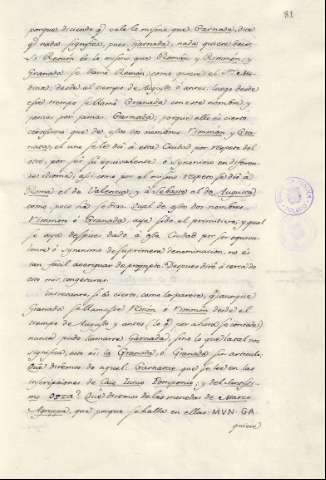 81
porque diciendo q.e vale lo mismo que Garnada, dice
q.e nada significa, pues Garnada, nada quiere decir.
Si Rimón es lo mismo que Rimón y Rimmón, y
Granada se llamó Rimón, como quiere el S.or Me-
dina, desde el tiempo de Augusto ó antes, luego desde
este tiempo se llamó Granada con este nombre, y
jamás Garnada, porque ello es cierto
que de estos dos nombres Rimmón y Gra-
nada, el uno se le dió á esta Ciudad por respeto del
otro, por ser su equivalente ó Synonimo en diferen-
tes idiomas, así como por el mismo respeto se dió á
Roma el de Valencia, y á Sebaste el de Augusta;
como pues no se dice qual de estos dos nombres
Rimmón ó Granada, aya sido el primitivo, y qual
se aya despues dado á esta Ciudad por ser equiva-
lente ó Synonimo de su primera denominacion, no es
tan facil averiguar de prompto. Despues diré á cerca de
esto mis congeturas.
Entretanto, si es cierto, como lo parece, q.e aunque
Granada se llamase Rimón ó Rimmón desde el
tiempo de Augusto, y antes (lo q.e por ahora se controvierte)
nunca pudo llamarse Garnada, sino lo que la tal voz
significa, esto es la Granada, ó Granada sin articulo,
Qué diremos de aquel Garnatae que se lee en las
inscripciones de Cayo Junio Pomponio, y del
Que diremos de las monedas de Marco
Agrippa, que porque se halla en ellas: MVN. GA
quiere